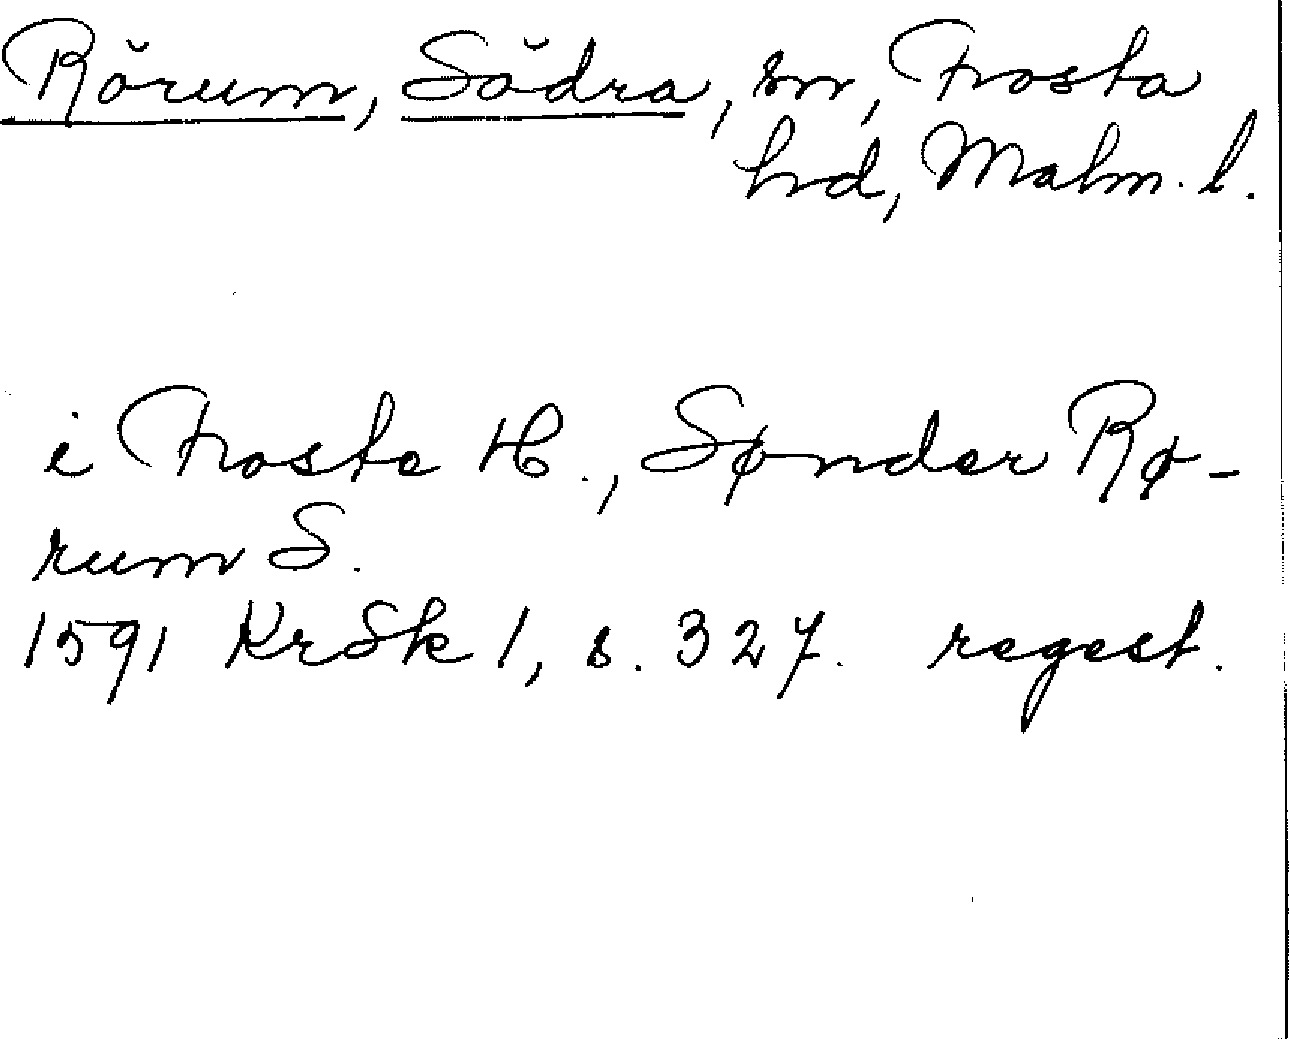 Rörum, Södra, sn, Frosta
hd, Malm. l.
i Froste H., Sønder Rø-
rum S.
1591 KrSk 1, s. 327. regest.